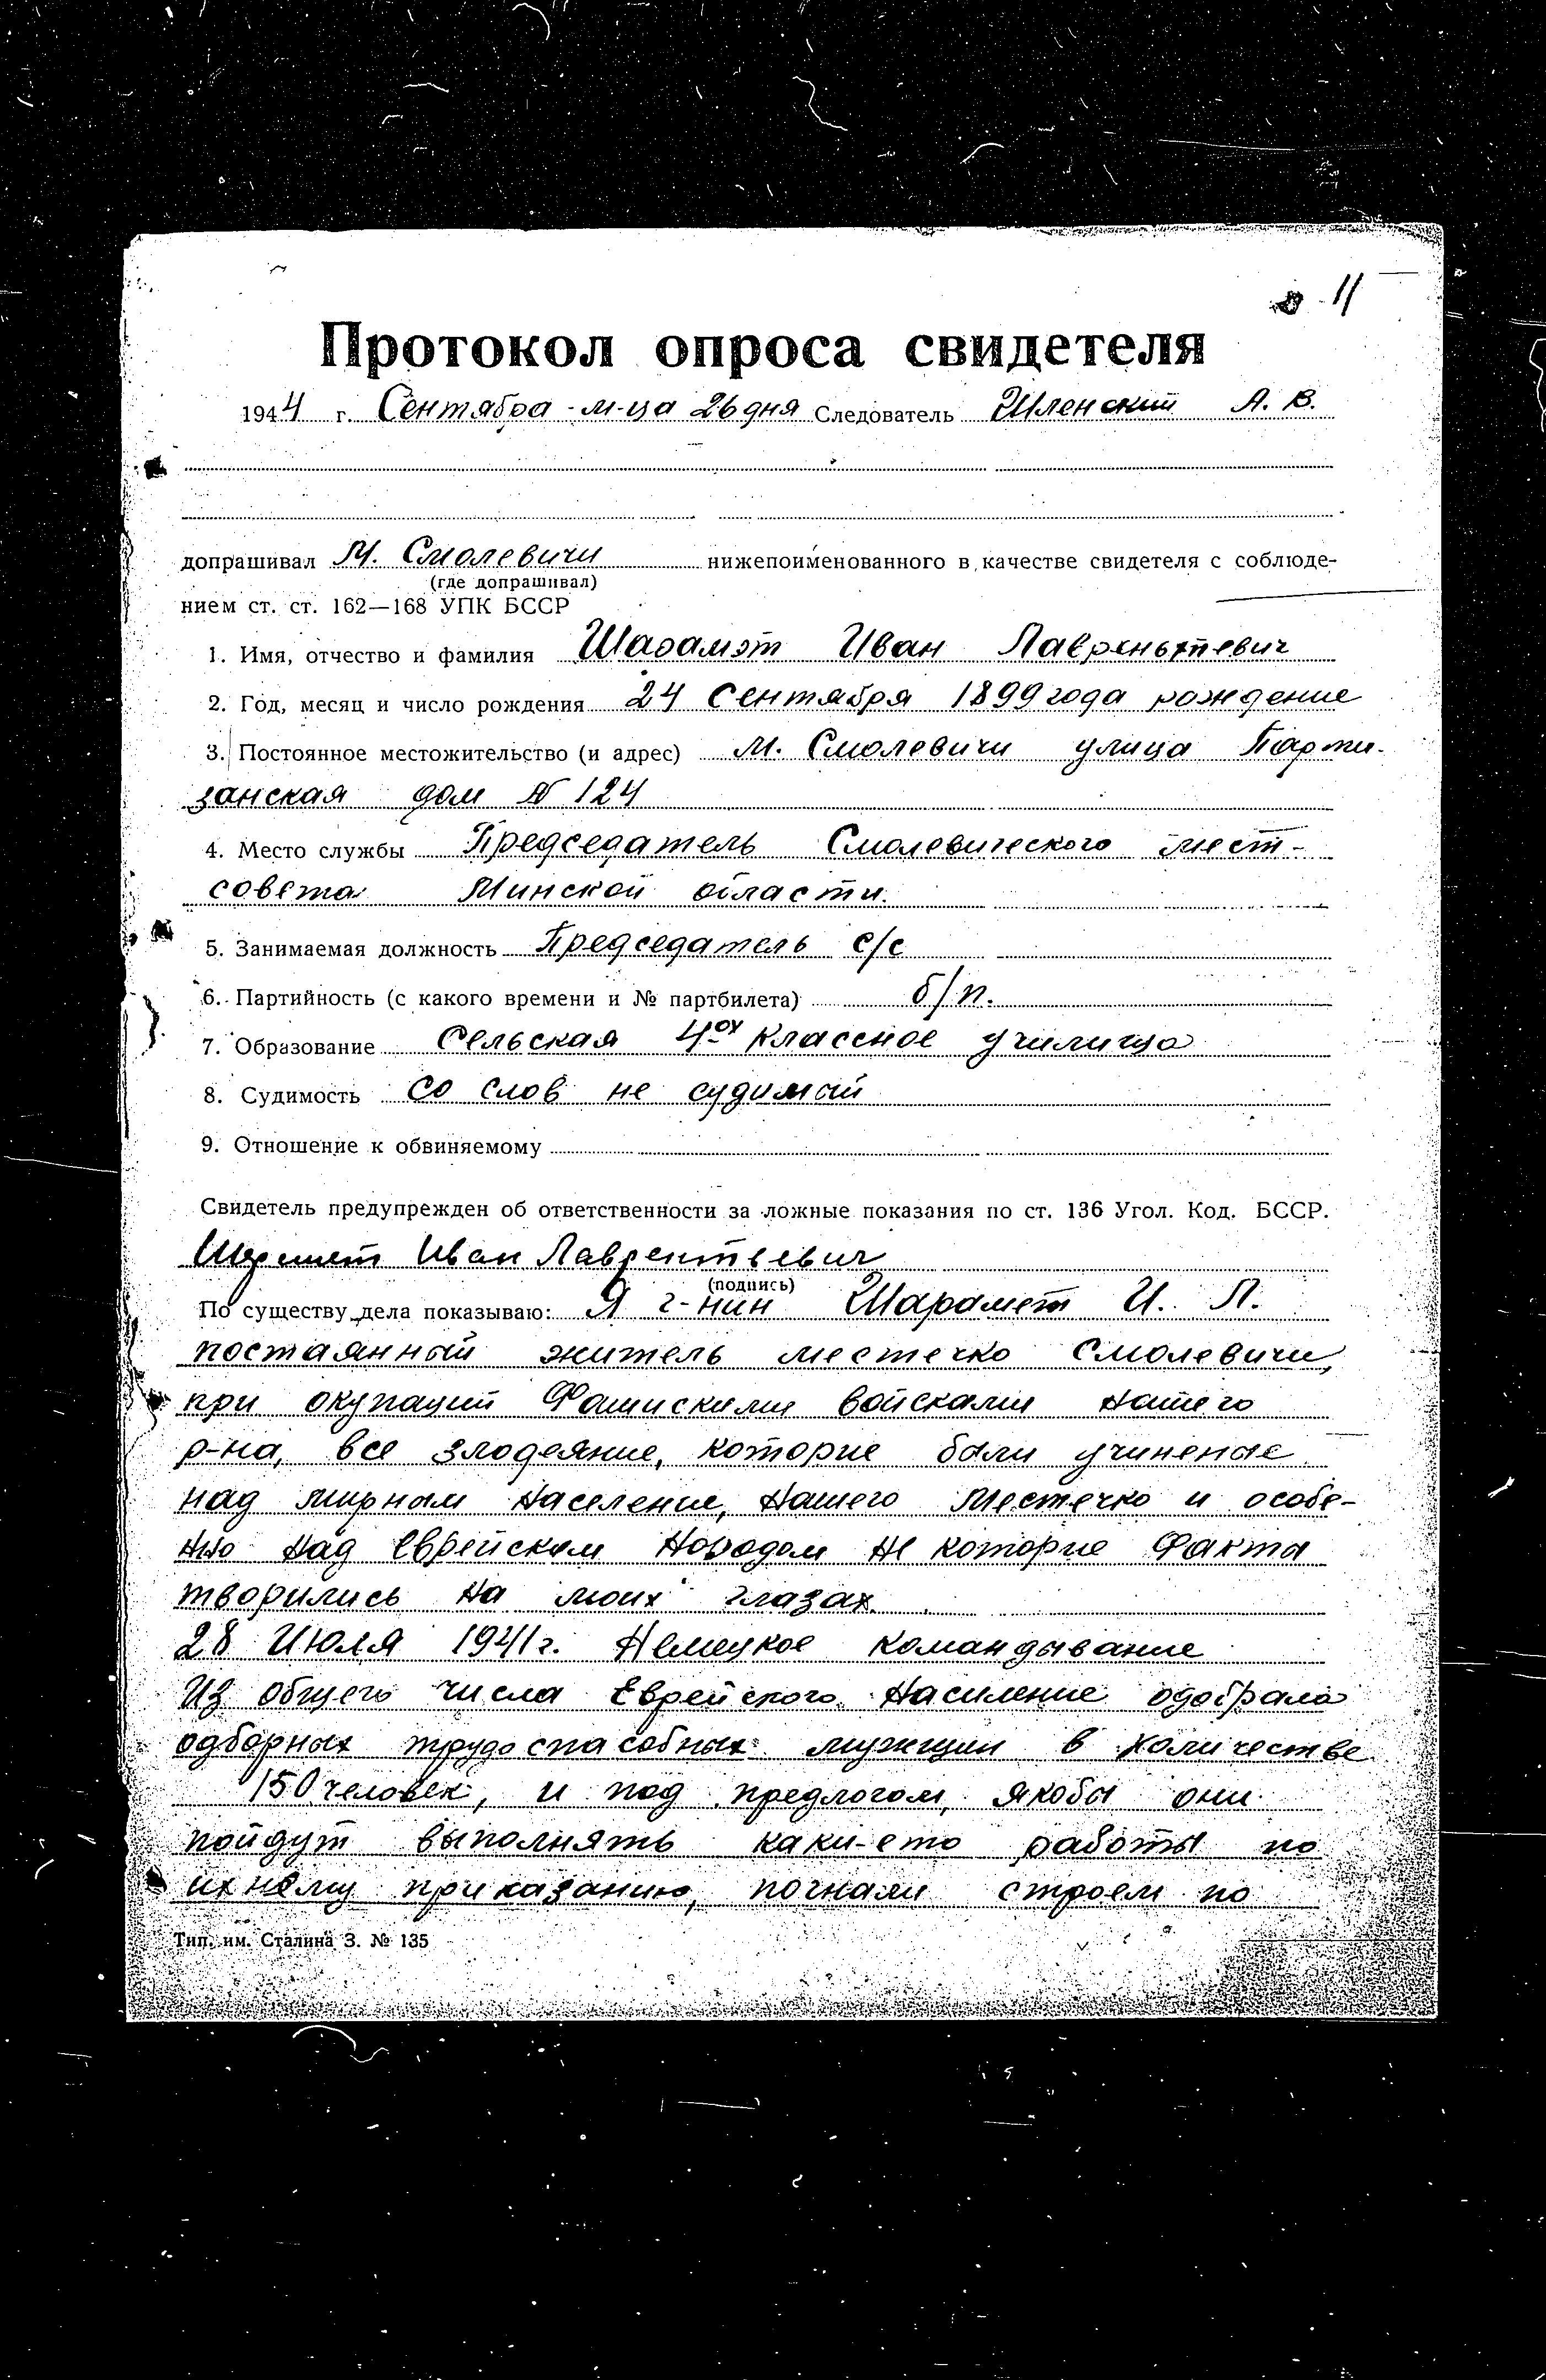 11
Протокол опроса свидетеля
1944 г. Сентября - м-ца 26 дня Следователь Шленский А. В.
допрашивал М. Смолевичи нижепоименованного в качестве свидетеля с соблюде-
(где допрашивал)
нием ст. ст. 162—168 УПК БССР
1. Имя, отчество и фамилия Шарамэт Иван Лавреньтевич
2. Год, месяц и число рождения 24 Сентября 1899 года рождение
3. Постоянное местожительство (и адрес) М. Смолевичи улица Парти-
занская дом № 124
4. Место службы Председатель Смолевического мест-
совета Минской области.
5. Занимаемая должность Председатель с/с
6. Партийность (с какого времени и № партбилета) б/п.
7. Образование Сельская 4ох классное училища
8. Судимость со слов не судимый
9. Отношение к обвиняемому
Свидетель предупрежден об ответственности за ложные показания по ст. 136 Угол. Код. БССР.
Иван Лаврентьевич
(подпись)
По существу дела показываю: Я г-нин Шарамет И. Л.
постаянный житель местечко Смолевичи,
при окупаций Фашискими войсками нашего
р-на, все злодеяние, которие были учиненые
над мирным население, нашего Местечко и особе-
но над Еврейским народом не которие Факты
творились на моих глазах.
28 Июля 1941 г. Немецкое командывание
Из общего числа Еврейского население одобрало
одборных трудоспасобных мужщин в количестве
150 человек, и под предлогом, якобы они
пойдут выполнять каки-ето работы по
ихнему приказанию, погнали строем по
Тип. им. Сталина З. № 135